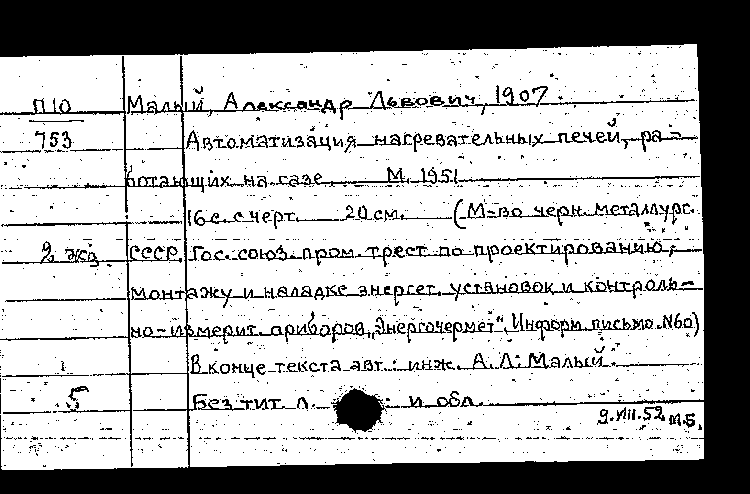 П10 Малый, Александр Львович, 1907.
753 Автоматизация нагревательных печей, ра-
ботающих на газе. М. 1951
16 с. с черт. 20 см. (М-во черн. металлург.
2 экз. СССР. Гос. союз. пром. трест по проектированию,
монтажу и наладке энергет. установок и контроль-
но-измерит. приборов "Энергочермет". Информ. письмо. N60)
В конце текста авт.: инж. А. Л. Малый.
5 Без тит. л. и обл.
9.VIII.52 М.Б.